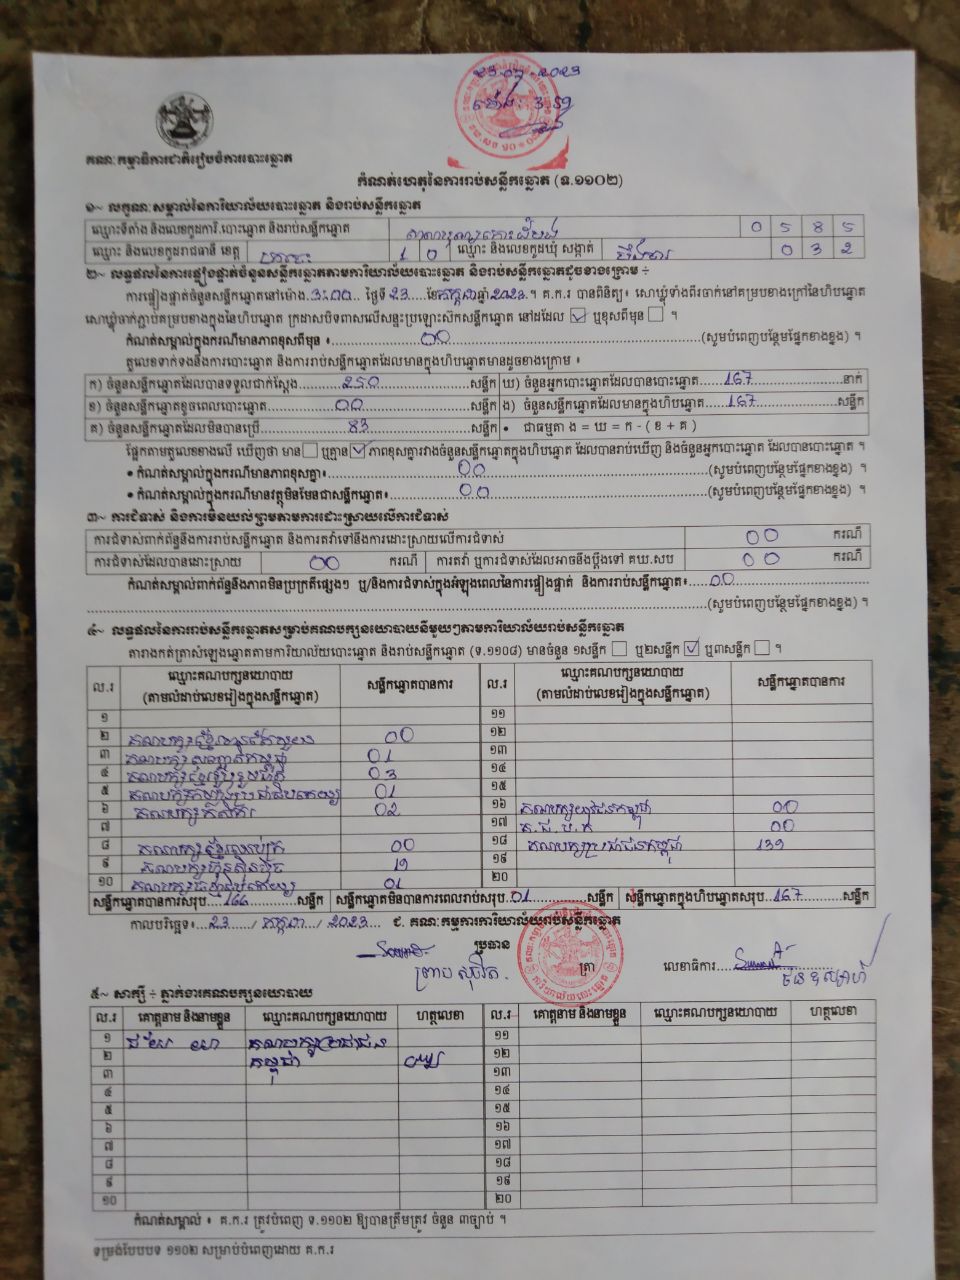 23.07.2023
ម៉ោង: 3:59
គណៈកម្មាធិការជាតិរៀបចំការបោះឆ្នោត
កំណត់ហេតុនៃការរាប់សន្លឹកឆ្នោត (ទ.១១០២)
១~ លក្ខណៈសម្គាល់នៃការិយាល័យបោះឆ្នោត និងរាប់សន្លឹកឆ្នោត
ឈ្មោះទីតាំង និងលេខកូដការិ.បោះឆ្នោត និងរាប់សន្លឹកឆ្នោត 0 5 8 5
ឈ្មោះ និងលេខកូដរាជធានី ខេត្ត ក្រចេះ 1 0 ឈ្មោះ និងលេខកូដឃុំ សង្កាត់ 0 3 2
២~ លទ្ធផលនៃការផ្ទៀងផ្ទាត់ចំនួនសន្លឹកឆ្នោតតាមការិយាល័យបោះឆ្នោត និងរាប់សន្លឹកឆ្នោតដូចខាងក្រោម ÷
ការផ្ទៀងផ្ទាត់ចំនួនសន្លឹកឆ្នោតនៅម៉ោង 3:00 ថ្ងៃទី 23 ខែកក្កដា ឆ្នាំ 2023 ។ គ.ក.រ បានពិនិត្យ៖ សោឃ្លុំទាំងពីរចាក់នៅគម្របខាងក្រៅនៃហិបឆ្នោត
សោឃ្លុំចាក់ភ្ជាប់គម្របខាងក្នុងនៃហិបឆ្នោត ក្រដាសបិទពាសលើសន្ទះប្រឡោះស៊កសន្លឹកឆ្នោត នៅដដែល ☑ ឬខុសពីមុន ☐ ។
កំណត់សម្គាល់ក្នុងករណីមានភាពខុសពីមុន ៖ 00 (សូមបំពេញបន្ថែមផ្នែកខាងខ្នង) ។
តួលេខទាក់ទងនឹងការបោះឆ្នោត និងការរាប់សន្លឹកឆ្នោតដែលមានក្នុងហិបឆ្នោតមានដូចខាងក្រោម ៖
ក) ចំនួនសន្លឹកឆ្នោតដែលបានទទួលជាក់ស្តែង 250 សន្លឹក ឃ) ចំនួនអ្នកបោះឆ្នោតដែលបានបោះឆ្នោត 167 នាក់
ខ) ចំនួនសន្លឹកឆ្នោតខូចពេលបោះឆ្នោត 00 សន្លឹក ង) ចំនួនសន្លឹកឆ្នោតដែលមានក្នុងហិបឆ្នោត 167 សន្លឹក
គ) ចំនួនសន្លឹកឆ្នោតដែលមិនបានប្រើ 83 សន្លឹក • ជាធម្មតា ង = ឃ = ក - ( ខ + គ )
ផ្អែកតាមតួលេខខាងលើ ឃើញថា មាន ☐ ឬគ្មាន ☑ ភាពខុសគ្នារវាងចំនួនសន្លឹកឆ្នោតក្នុងហិបឆ្នោត ដែលបានរាប់ឃើញ និងចំនួនអ្នកបោះឆ្នោត ដែលបានបោះឆ្នោត ។
• កំណត់សម្គាល់ក្នុងករណីមានភាពខុសគ្នា៖ 00 (សូមបំពេញបន្ថែមផ្នែកខាងខ្នង) ។
• កំណត់សម្គាល់ក្នុងករណីមានវត្ថុមិនមែនជាសន្លឹកឆ្នោត៖ 00 (សូមបំពេញបន្ថែមផ្នែកខាងខ្នង) ។
៣~ ការជំទាស់ និងការមិនយល់ព្រមតាមការដោះស្រាយលើការជំទាស់
ការជំទាស់ពាក់ព័ន្ធនឹងការរាប់សន្លឹកឆ្នោត និងការតវ៉ាទៅនឹងការដោះស្រាយលើការជំទាស់ 00 ករណី
ការជំទាស់ដែលបានដោះស្រាយ 00 ករណី ការតវ៉ា ឬការជំទាស់ដែលអាចនឹងប្តឹងទៅ គឃ.សប 00 ករណី
កំណត់សម្គាល់ពាក់ព័ន្ធនឹងភាពមិនប្រក្រតីផ្សេងៗ ឬ/និងការជំទាស់ក្នុងអំឡុងពេលនៃការផ្ទៀងផ្ទាត់ និងការរាប់សន្លឹកឆ្នោត៖ 00
(សូមបំពេញបន្ថែមផ្នែកខាងខ្នង) ។
៤~ លទ្ធផលនៃការរាប់សន្លឹកឆ្នោតសម្រាប់គណបក្សនយោបាយនីមួយៗតាមការិយាល័យរាប់សន្លឹកឆ្នោត
តារាងកត់ត្រាសំឡេងឆ្នោតតាមការិយាល័យបោះឆ្នោត និងរាប់សន្លឹកឆ្នោត (ទ.១១០៨) មានចំនួន ១សន្លឹក ☐ ឬ២សន្លឹក ☑ ឬ៣សន្លឹក ☐ ។
ល.រ ឈ្មោះគណបក្សនយោបាយ (តាមលំដាប់លេខរៀងក្នុងសន្លឹកឆ្នោត) សន្លឹកឆ្នោតបានការ ល.រ ឈ្មោះគណបក្សនយោបាយ (តាមលំដាប់លេខរៀងក្នុងសន្លឹកឆ្នោត) សន្លឹកឆ្នោតបានការ
១ ១១
២ 00 ១២
៣ 01 ១៣
៤ គណបក្សខ្មែររួបរួមជាតិ 03 ១៤
៥ 01 ១៥
៦ គណបក្សកសិករ 02 ១៦ គណបក្សយុវជនកម្ពុជា 00
៧ ១៧ 00
៨ 00 ១៨ គណបក្សប្រជាជនកម្ពុជា 139
៩ គណបក្សហ៊្វុនស៊ិនប៉ិច 19 ១៩
១០ 01 ២០
សន្លឹកឆ្នោតបានការសរុប 166 សន្លឹក សន្លឹកឆ្នោតមិនបានការពេលរាប់សរុប 01 សន្លឹក សន្លឹកឆ្នោតក្នុងហិបឆ្នោតសរុប 167 សន្លឹក
កាលបរិច្ឆេទ៖ 23 / កក្កដា / 2023 ជ. គណៈកម្មការការិយាល័យរាប់សន្លឹកឆ្នោត
ប្រធាន ត្រា លេខាធិការ
៥~ សាក្សី ÷ ភ្នាក់ងារគណបក្សនយោបាយ
ល.រ គោត្តនាម និងនាមខ្លួន ឈ្មោះគណបក្សនយោបាយ ហត្ថលេខា ល.រ គោត្តនាម និងនាមខ្លួន ឈ្មោះគណបក្សនយោបាយ ហត្ថលេខា
១ គណបក្សប្រជាជន ១១
២ កម្ពុជា ១២
៣ ១៣
៤ ១៤
៥ ១៥
៦ ១៦
៧ ១៧
៨ ១៨
៩ ១៩
១០ ២០
កំណត់សម្គាល់ ៖ គ.ក.រ ត្រូវបំពេញ ទ.១១០២ ឱ្យបានត្រឹមត្រូវ ចំនួន ៣ច្បាប់ ។
ទម្រង់បែបបទ ១១០២ សម្រាប់បំពេញដោយ គ.ក.រ